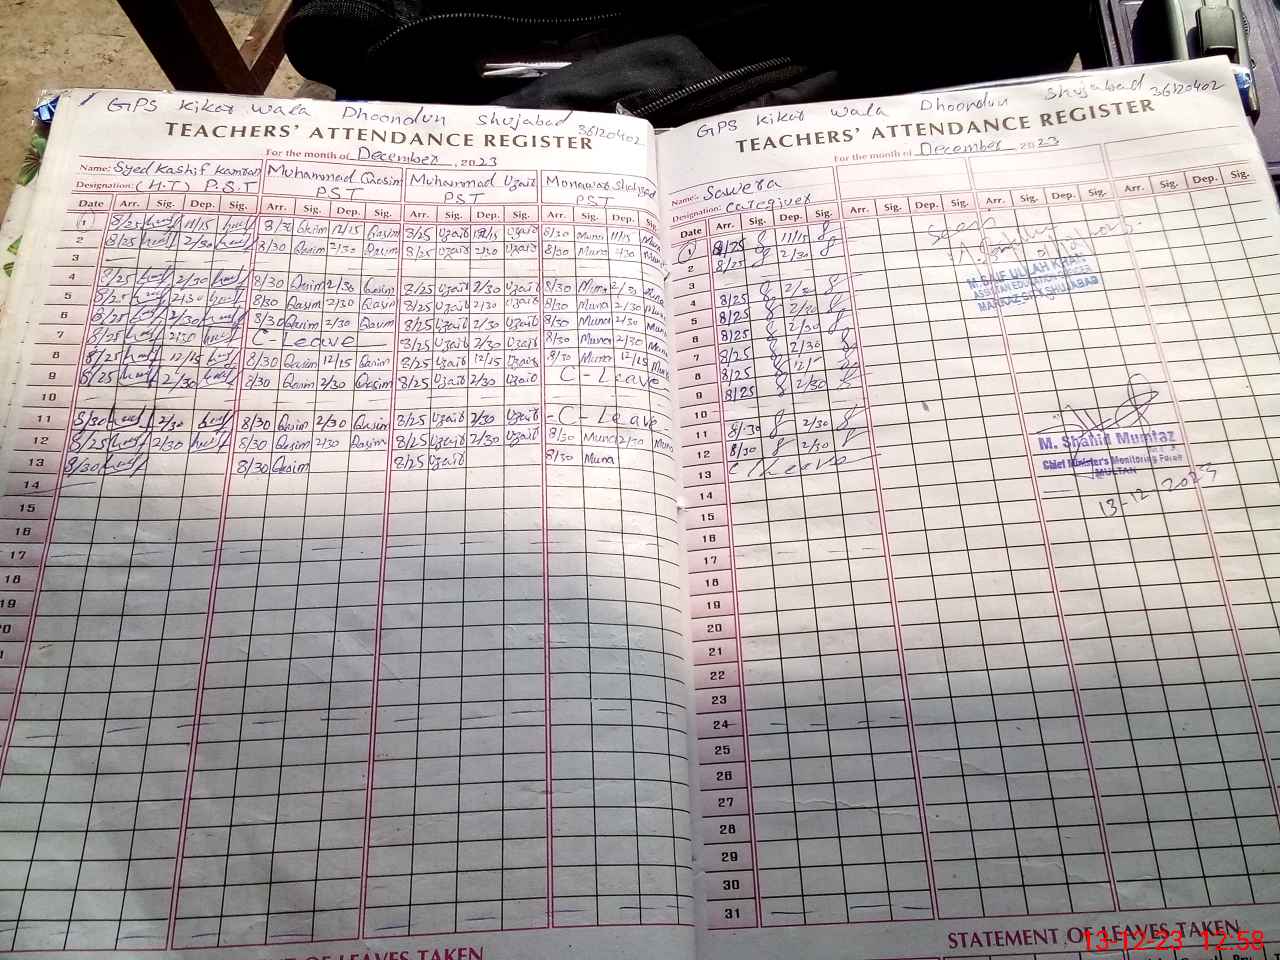 GPS Kikar wala Dhoondun Shujabad 36120402
TEACHERS' ATTENDANCE REGISTER
For the month of December, 2023
Name: Syed Kashif Kamran Muhammad Qasim Muhammad Uzair
Designation: (H.T) P.S.T PST PST PST
Date Arr. Sig. Dep. Sig. Arr. Sig. Dep. Sig. Arr. Sig. Dep. Sig. Arr. Sig. Dep. Sig.
1 8/25 11/15 Qasim 12/15 Qasim 8/25 Uzair Uzair 8/30 Muna 11/15 Muna
2 8/25 2/30 8/30 Qasim 2/30 Qasim 8/25 Uzair 2/30 Uzair 8/30 Muna 2/30 Muna
3
4 8/25 2/30 8/30 Qasim 2/30 Qasim 8/25 Uzair 2/30 Uzair 8/30 Muna 2/30 Muna
5 8/25 2/30 8/30 Qasim 2/30 Qasim 8/25 Uzair 2/30 Uzair 8/30 Muna 2/30 Muna
6 8/25 2/30 8/30 Qasim 2/30 Qasim 8/25 Uzair 2/30 Uzair 8/30 Muna 2/30 Muna
7 8/25 2/30 C-Leave 8/25 Uzair 2/30 Uzair 8/30 Muna 2/30 Muna
8 8/25 12/15 8/30 Qasim 12/15 Qasim 8/25 Uzair 12/15 Uzair 8/30 Muna 12/15 Muna
9 8/25 2/30 8/30 Qasim 2/30 Qasim 8/25 Uzair 2/30 Uzair C-Leave
10
11 8/30 2/30 8/30 Qasim 2/30 Qasim 8/25 Uzair 2/30 Uzair -C-Leave
12 8/25 2/30 8/30 Qasim 2/30 Qasim 8/25 Uzair 2/30 Uzair 8/30 Muna 2/30 Muna
13 8/30 8/30 Qasim 8/25 Uzair 8/30 Muna
14
15
16
17
18
19
20
STATEMENT OF LEAVES TAKEN
GPS Kikar wala Dhoondun Shujabad 36120402
TEACHERS' ATTENDANCE REGISTER
For the month of December 2023
Name: Sawera
Designation: Caregiver
Date Arr. Sig. Dep. Sig. Arr. Sig. Dep. Sig. Arr. Sig. Dep. Sig. Arr. Sig. Dep. Sig.
1 8/25 11/15
2 8/25 2/30
3
4 8/25 2/30
5 8/25 2/30
6 8/25 2/30
7 8/25 2/30
8 8/25
9 8/25 2/30
10
11 8/30 2/30
12 8/30 2/30
13 C/Leave
14
15
16
17
18
19
20
21
22
23
24
25
26
27
28
29
30
31
Seen
M. SAIF ULLAH KHAN
ASSISTANT EDUCATION OFFICER
SHUJABAD
M. Shahid Mumtaz
Chief Minister's Monitoring Force
MULTAN
13-12-2023
STATEMENT OF LEAVES TAKEN
13-12-23 12:58